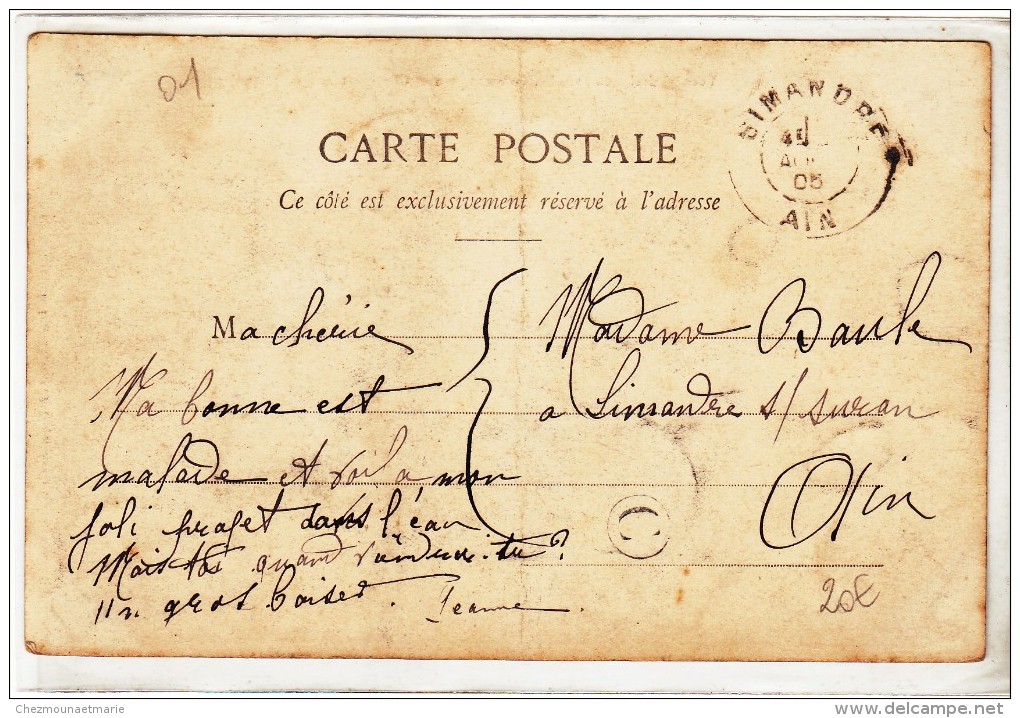 01
SIMANDRE
AOU
05
AIN
CARTE POSTALE
Ce côté est exclusivement réservé à l'adresse
Ma chérie
Ma bonne est
malade et voila mon
joli projet dans l'eau
Mais toi quand viendrai tu ?
Un gros baiser. Jeanne.
Madame
a Simandre s/ suran
Ain
C
20€
Chezmounaetmarie
delcampe.net